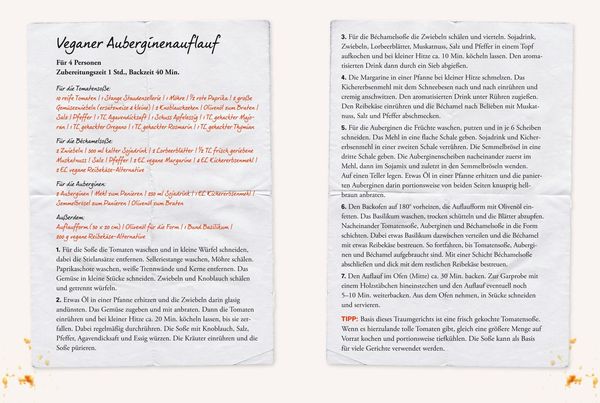 Veganer Auberginenauflauf
Für 4 Personen
Zubereitungszeit 1 Std., Backzeit 40 Min.
Für die Tomatensoße:
10 reife Tomaten | 1 Stange Staudensellerie | 1 Möhre | ½ rote Paprika | 2 große
Gemüsezwiebeln (ersatzweise 4 kleine) | 2 Knoblauchzehen | Olivenöl zum Braten |
Salz | Pfeffer | 1 TL Agavendicksaft | 1 Schuss Apfelessig | 1 TL gehackter Majo-
ran | 1 TL gehackter Oregano | 1 TL gehackter Rosmarin | 1 TL gehackter Thymian
Für die Béchamelsoße:
2 Zwiebeln | 500 ml kalter Sojadrink | 2 Lorbeerblätter | ½ TL frisch geriebene
Muskatnuss | Salz | Pfeffer | 2 EL vegane Margarine | 2 EL Kichererbsenmehl |
2 EL vegane Reibekäse-Alternative
Für die Auberginen:
2 Auberginen | Mehl zum Panieren | 250 ml Sojadrink | 1 EL Kichererbsenmehl |
Semmelbrösel zum Panieren | Olivenöl zum Braten
Außerdem:
Auflaufform (30 x 20 cm) | Olivenöl für die Form | 1 Bund Basilikum |
200 g vegane Reibekäse-Alternative
1. Für die Soße die Tomaten waschen und in kleine Würfel schneiden,
dabei die Stielansätze entfernen. Selleriestange waschen, Möhre schälen.
Paprikaschote waschen, weiße Trennwände und Kerne entfernen. Das
Gemüse in kleine Stücke schneiden, Zwiebeln und Knoblauch schälen
und getrennt würfeln.
2. Etwas Öl in einer Pfanne erhitzen und die Zwiebeln darin glasig
andünsten. Das Gemüse zugeben und mit anbraten. Dann die Tomaten
einrühren und bei kleiner Hitze ca. 20 Min. köcheln lassen, bis sie zer-
fallen. Dabei regelmäßig durchrühren. Die Soße mit Knoblauch, Salz,
Pfeffer, Agavendicksaft und Essig würzen. Die Kräuter einrühren und die
Soße pürieren.
3. Für die Béchamelsoße die Zwiebeln schälen und vierteln. Sojadrink,
Zwiebeln, Lorbeerblätter, Muskatnuss, Salz und Pfeffer in einem Topf
aufkochen und bei kleiner Hitze ca. 10 Min. köcheln lassen. Den aroma-
tisierten Drink dann durch ein Sieb abgießen.
4. Die Margarine in einer Pfanne bei kleiner Hitze schmelzen. Das
Kichererbsenmehl mit dem Schneebesen nach und nach einrühren und
cremig anschwitzen. Den aromatisierten Drink unter Rühren zugießen.
Den Reibekäse einrühren und die Béchamel nach Belieben mit Muskat-
nuss, Salz und Pfeffer abschmecken.
5. Für die Auberginen die Früchte waschen, putzen und in je 6 Scheiben
schneiden. Das Mehl in eine flache Schale geben. Sojadrink und Kicher-
erbsenmehl in einer zweiten Schale verrühren. Die Semmelbrösel in eine
dritte Schale geben. Die Auberginenscheiben nacheinander zuerst im
Mehl, dann im Sojamix und zuletzt in den Semmelbröseln wenden.
Auf einen Teller legen. Etwas Öl in einer Pfanne erhitzen und die panier-
ten Auberginen darin portionsweise von beiden Seiten knusprig hell-
braun anbraten.
6. Den Backofen auf 180° vorheizen, die Auflaufform mit Olivenöl ein-
fetten. Das Basilikum waschen, trocken schütteln und die Blätter abzupfen.
Nacheinander Tomatensoße, Auberginen und Béchamelsoße in die Form
schichten. Dabei etwas Basilikum dazwischen verteilen und die Béchamel
mit etwas Reibekäse bestreuen. So fortfahren, bis Tomatensoße, Aubergi-
nen und Béchamel aufgebraucht sind. Mit einer Schicht Béchamelsoße
abschließen und dick mit dem restlichen Reibekäse bestreuen.
7. Den Auflauf im Ofen (Mitte) ca. 30 Min. backen. Zur Garprobe mit
einem Holzstäbchen hineinstechen und den Auflauf eventuell noch
5–10 Min. weiterbacken. Aus dem Ofen nehmen, in Stücke schneiden
und servieren.
TIPP: Basis dieses Traumgerichts ist eine frisch gekochte Tomatensoße.
Wenn es hierzulande tolle Tomaten gibt, gleich eine größere Menge auf
Vorrat kochen und portionsweise tiefkühlen. Die Soße kann als Basis
für viele Gerichte verwendet werden.